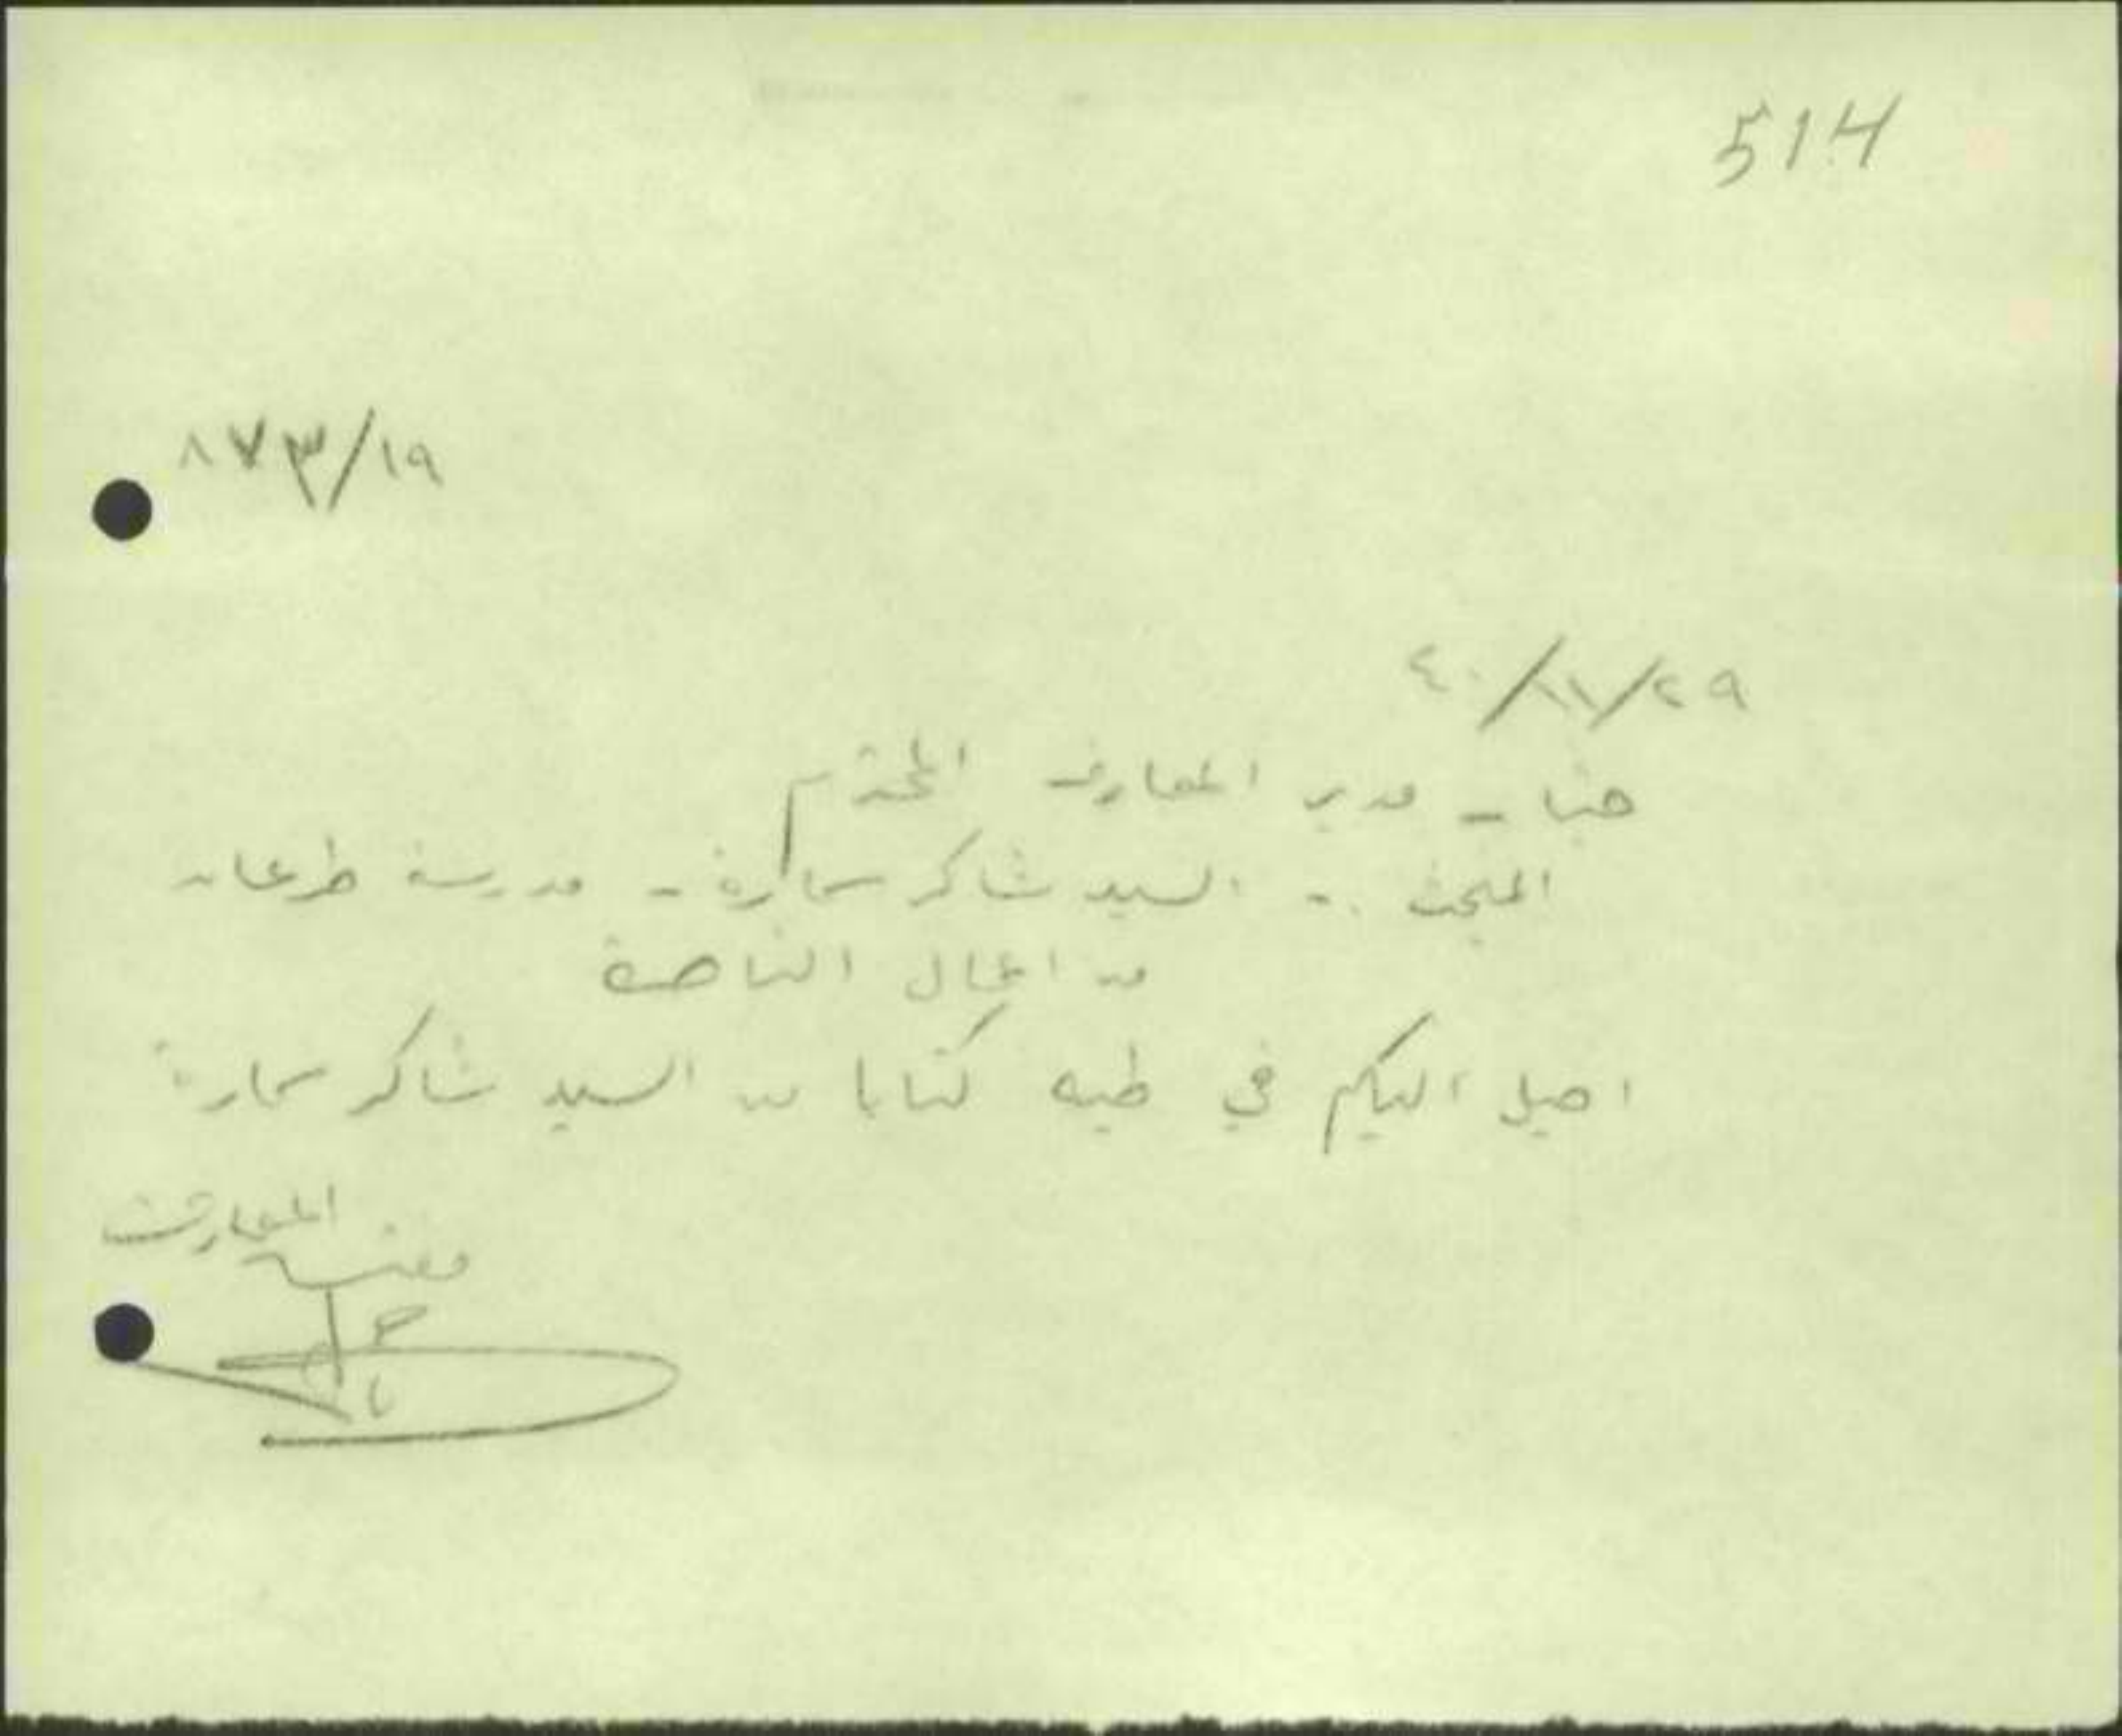 514
٨٧٣/١٩
٢٩/١١/٤٠
مدير المعارف المحترم
المبحث :- السيد شاكر سمارة - مدرسة طرعان
من اعمال الناصرة
احيل اليكم في طيه كتابا من السيد شاكر سمارة
المعارف
مفتش